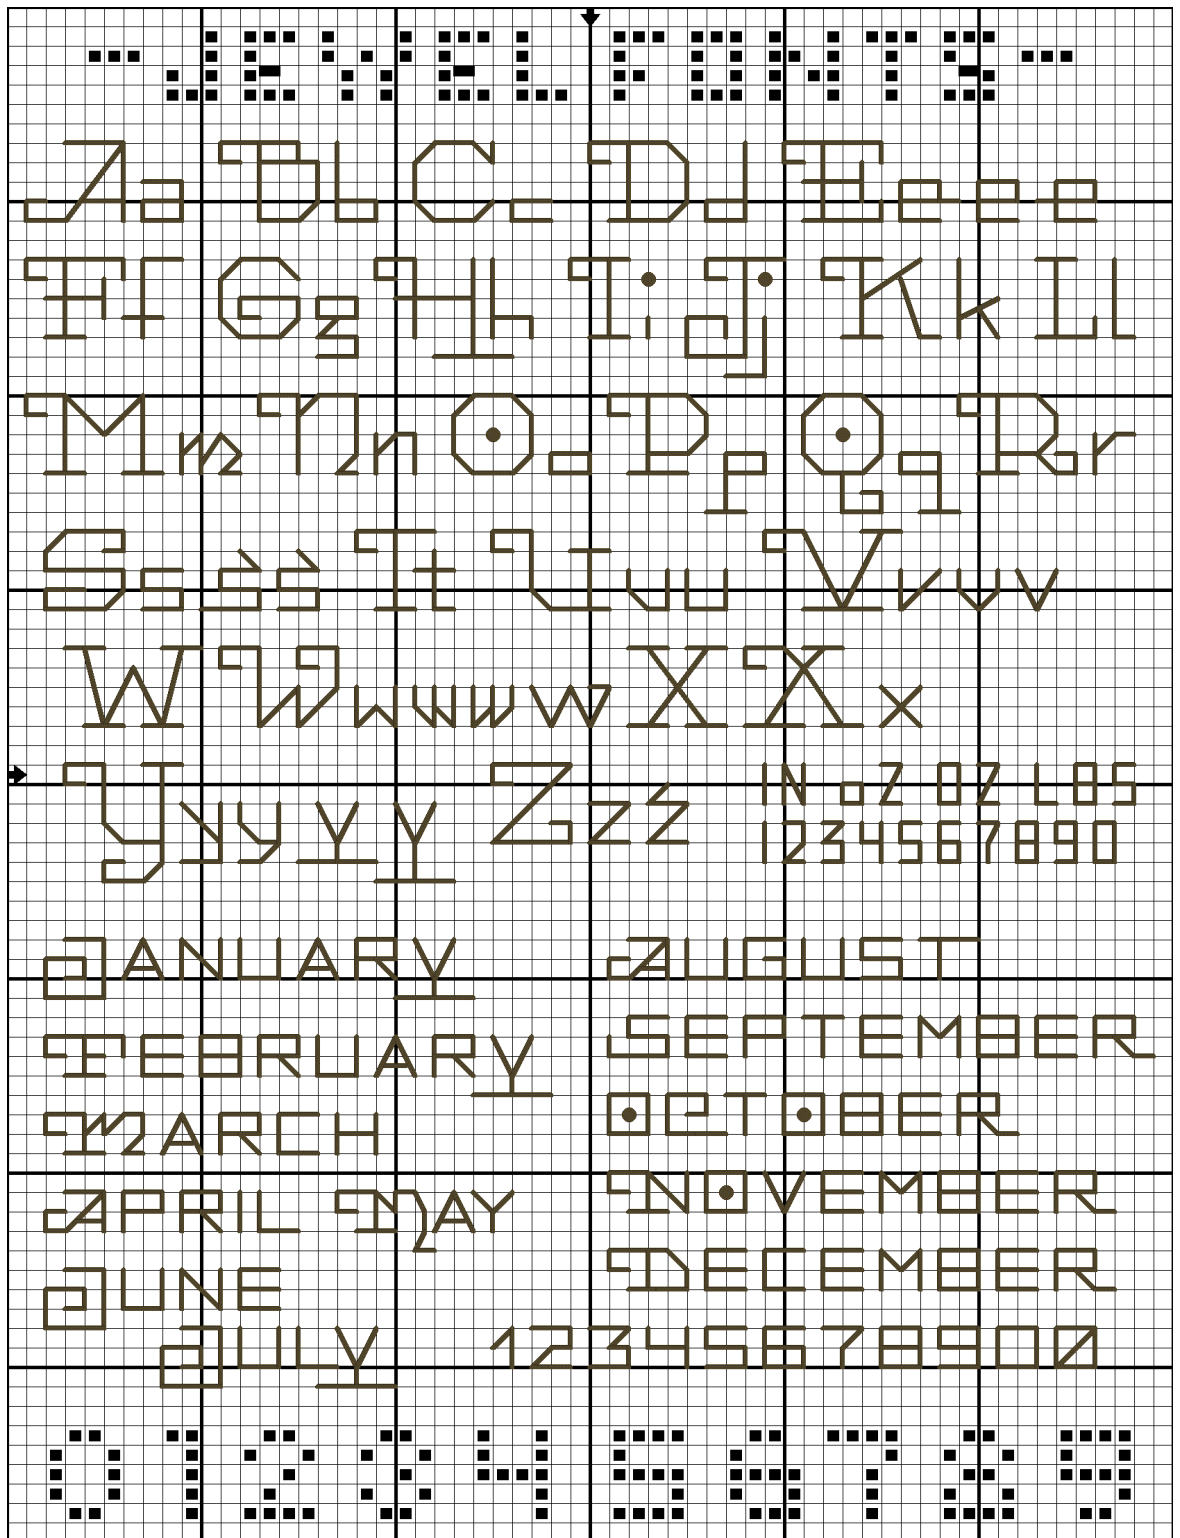 - JEWEL FONTS -
Aa Bb Cc Dd Ee e e
Ff Gg Hh Ii Jj Kk Ll
Mm Nn Oo Pp Qq Rr
Ss s s Tt Uu u Vv v v
W W w w w w X X x
Y y y y y Z z z
1234567890
JANUARY
FEBRUARY
MARCH
APRIL MAY
JUNE
JULY
AUGUST
SEPTEMBER
OCTOBER
NOVEMBER
DECEMBER
12345678900
0 1 2 3 4 5 6 7 8 9